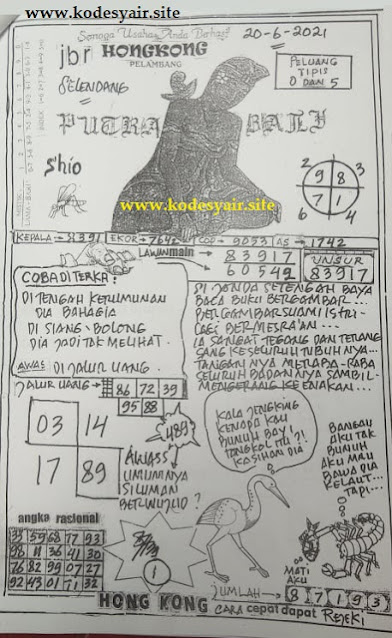 www.kodesyair.site
Semoga Usaha Anda Berhasil
20-6-2021
jbr HONGKONG
PELAMBANG
SELENDANG
PELUANG
TIPIS
0 DAN 5
PUTRA BALI
shio
www.kodesyair.site
2 9 8 3
6 7 1 4
KEPALA = 8391 EKOR = 7642 COP = 9053 AS = 1742
LAWUN main
83917
60542
UNSUR
83917
COBA DITERKA:
DI TENGAH KERUMUNAN
DIA BAHAGIA
DI SIANG BOLONG
DIA JADI TAK MELIHAT.
AWAS DI JALUR UANG.
DI JANDA SETENGAH BAYA
BACA BUKU BERGAMBAR...
BERGAMBAR SUAMI ISTRI
LAGI BERMESRA'AN...
IA SANGAT TEGANG DAN TERANG
SANG KESELURUH TUBUHNYA...
TANGANNYA MERABA-RABA
SELURUH BADANNYA SAMBIL
MENGERANG KEENAKAN...
JALUR UANG =
86 72 39
95 88
03 14
17 89
489
AWASS
UMUMNYA
SILUMAN
BERWUJUD?
KALA JENGKING
KENAPA KAU
BUNUH BAYI
TONGKOL ITU?!
KASIHAN DIA
BANGAU
AKU TAK
BUNUH
AKU MAU
BAWA DIA
KELAUT...
TAPI...
angka rasional
35 59 68 17 93
98 11 36 41 30
76 82 99 07 27
92 43 01 71 32
1
MATI
AKU
JUMLAH
8 7 1 9 3
HONG KONG CARA cepat dapat REJEKI